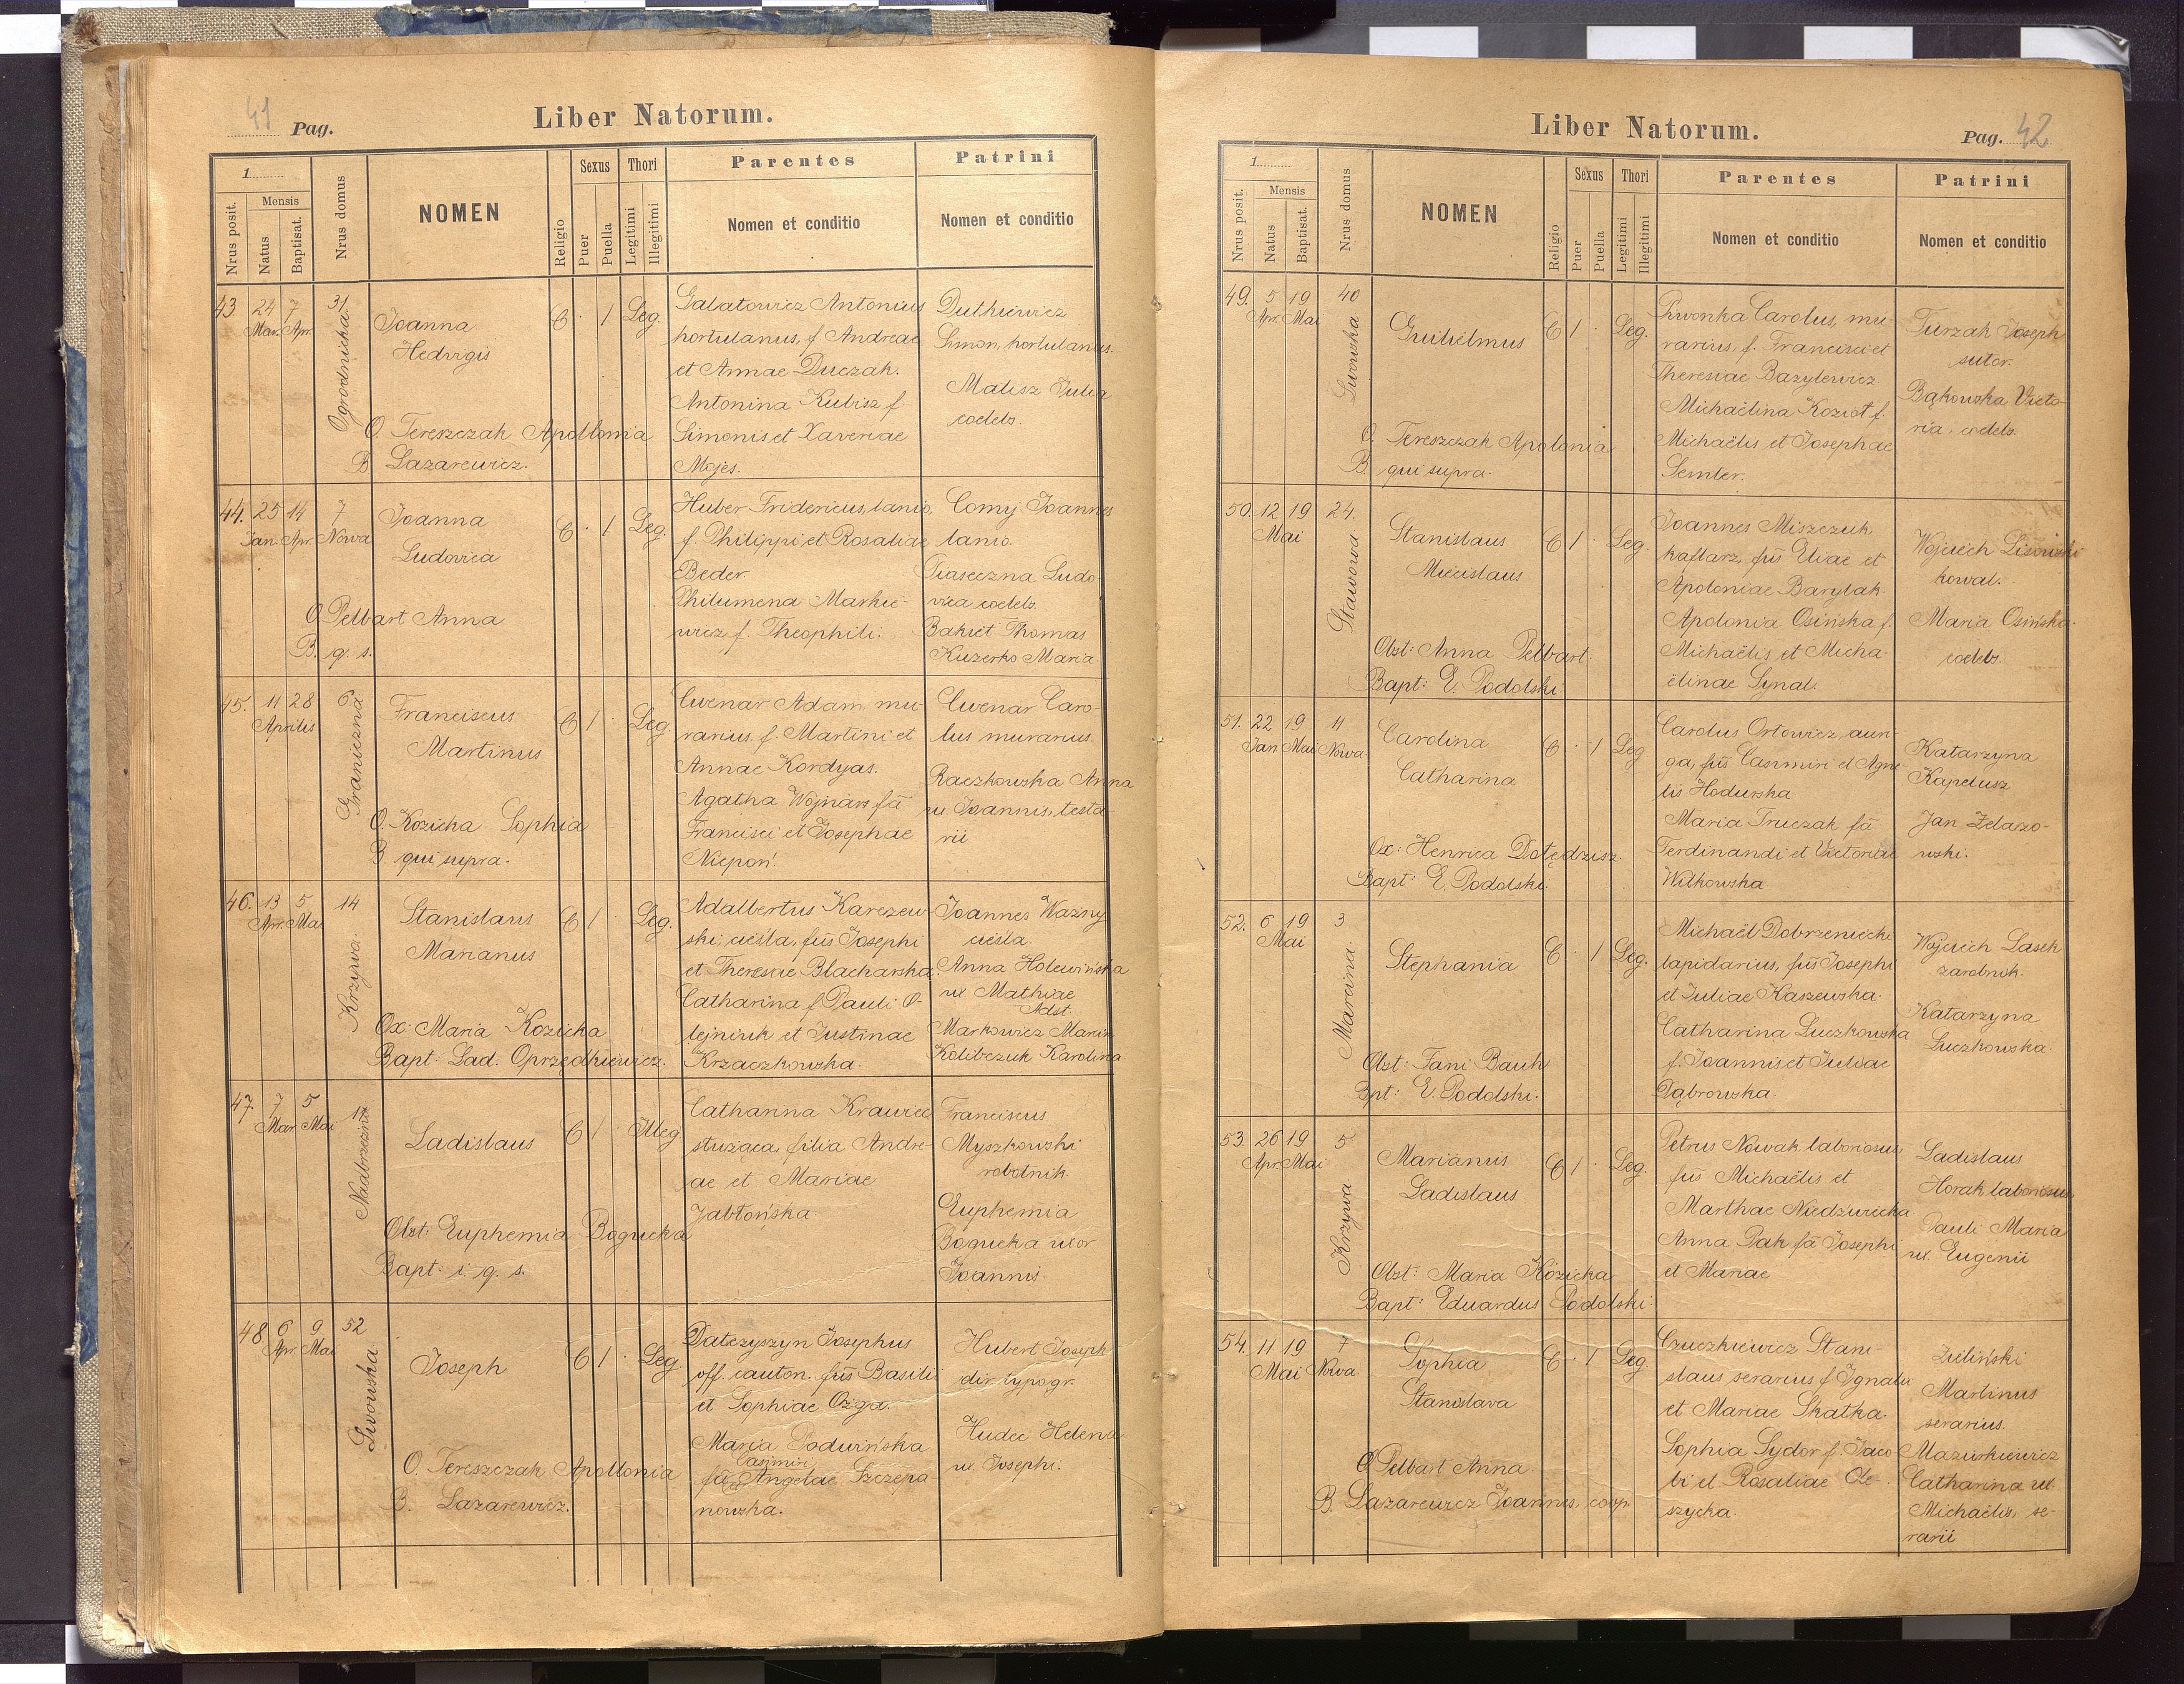 41 Pag.
Liber Natorum.
1
Nrus posit.
Mensis
Natus
Baptisat.
Nrus domus
NOMEN
Religio
Sexus
Puer
Puella
Thori
Legitimi
Illegitimi
Parentes
Nomen et conditio
Patrini
Nomen et conditio
43. 24 Mar. 7 Apr. 31 Ogrodnicka
Joanna
Hedvigis
O. Tereszczak Apollonia
B. Lazarewicz.
C · 1 Leg.
Galatowicz Antonius
hortulanus, f. Andreae
et Annae Duczak.
Antonina Kubisz f.
Simonis et Xaveriae
Mojes.
Dutkiewicz
Simon, hortulanus.
Malisz Julia
coelebs.
44. 25 Jan. 14 Apr. 7 Nowa
Joanna
Ludovica
O Pelbart Anna
B. q. s.
C · 1 Leg.
Huber Fridericus, lanio,
f. Philippi et Rosaliae
Beder.
Philumena Markie-
wicz f. Theophili.
Comij Joannes
lanio.
Piaseczna Ludo-
vica coelebs.
Bakiet Thomas
Kuzerko Maria
45. 11 28 Aprilis 6 Graniczna
Franciscus
Martinus
O. Kozicka Sophia
B. qui supra.
C 1 · Leg.
Cwenar Adam, mu-
rarius, f. Martini et
Annae Kordyas.
Agatha Wojnar fa
Francisci et Josephae
Niepoń.
Cwenar Caro-
lus murarius
Raczkowska Anna
ux Joannis, testa-
rii
46. 13 Apr. 5 Mai 14 Krzywa
Stanislaus
Marianus
Ox: Maria Kozicka
Bapt: Lad. Oprzędkiewicz.
C 1 · Leg.
Adalbertus Karczew-
ski, cieśla, fus Josephi
et Theresiae Blacharska.
Catharina f. Pauli O-
lejniuk et Justinae
Krzaczkowska.
Joannes Ważny
cieśla.
Anna Holewińska
ux Mathiae
Adst.
Markowicz Marcin
Kolibczuk Karolina
47. 7 Mar. 5 Mai 17 Nadbrzeżna
Ladislaus
Obst: Euphemia Bogucka
Bapt: i. q. s.
C 1 · Illeg
Catharina Krawiec
służąca, filia Andre-
ae et Mariae
Jabłońska.
Franciscus
Myszkowski
robotnik
Euphemia
Bogucka uxor
Joannis
48. 6 Apr. 9 Mai 52 Lwowska
Joseph
O. Tereszczak Apollonia
B. Lazarewicz.
C 1 · Leg.
Datczyszyn Josephus
off. cauton. fus Basili
et Sophiae Ożga.
Maria Podwińska
Casimiri
fa Angelae Szczepa
nowska.
Hubert Joseph
dir typogr.
Hudec Helena
ux Josephi.
Liber Natorum.
Pag. 42
1
Nrus posit.
Mensis
Natus
Baptisat.
Nrus domus
NOMEN
Religio
Sexus
Puer
Puella
Thori
Legitimi
Illegitimi
Parentes
Nomen et conditio
Patrini
Nomen et conditio
49. 5 Apr. 19 Mai 40 Lwowska
Guilielmus
O. Tereszczak Apolonia
B qui supra.
C 1 · Leg.
Carolus, mu-
rarius, f. Francisci et
Theresiae Bazylewicz
Michaëlina Kozioł f.
Michaëlis et Josephae
Semler.
Turzak Joseph
sutor.
Bąkowska Victo-
ria, coelebs.
50. 12 19 Mai 24. Stawowa
Stanislaus
Miecislaus
Obst: Anna Pelbart.
Bapt: E. Podolski
C 1 · Leg
Joannes Miszczuk
kaflarz, fus Eliae et
Apoloniae Barylak.
Apolonia Osińska f.
Michaëlis et Micha-
ëlinae Synal.
Wojciech Lisowski
kowal.
Maria Osińska.
coelebs.
51. 22 Jan 19 Mai 11 Nowa
Carolina
Catharina
Ox: Henrica Dołędzisz.
Bapt: E. Podolski.
C · 1 Leg
Carolus Orłowicz, auri-
ga, fus Casimiri et Agne-
tis Hodurska
Maria Truczak fa
Ferdinandi et Victoriae
Witkowska
Katarzyna
Kapelusz
Jan Żelazo-
wski.
52. 6 19 Mai 3 Marcina
Stephania
Obst: Fani Bauh
Bpt: E. Podolski.
C · 1 Leg.
Michaël Dobrzeniecki
lapidarius, fus Josephi
et Juliae Kaszewska.
Catharina Luczkowska
f. Joannis et Juliae
Dąbrowska.
Wojciech Lasek
zarobnik.
Katarzyna
Luczkowska.
53. 26 Apr. 19 Mai 5 Krzywa
Marianus
Ladislaus
Obst: Maria Kozicka
Bapt: Eduardus Podolski.
C 1 · Leg.
Petrus Nowak laboriosus,
fus Michaëlis et
Marthae Niedzwiecka
Anna Pak fa Josephi
et Mariae
Ladislaus
Horak laboriosus
Pauli Maria
ux. Eugenii
54. 11 19 Mai 7 Nowa
Sophia
Stanislava
O Pelbart Anna.
B. Lazarewicz Joannes, coop.
C · 1 Leg.
Czuczkiewicz Stani-
slaus, serarius f. Ignatii
et Mariae Skałka.
Sophia Sydor f. Jaco-
bi et Rosaliae Ole-
szycka.
Zieliński
Martinus
serarius.
Mazurkiewicz
Catharina ux
Michaëlis, se-
rarii